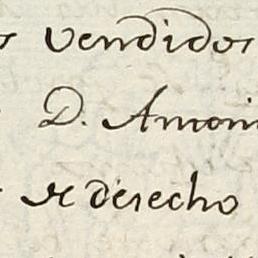 vendidos
D. Antoni
de derecho